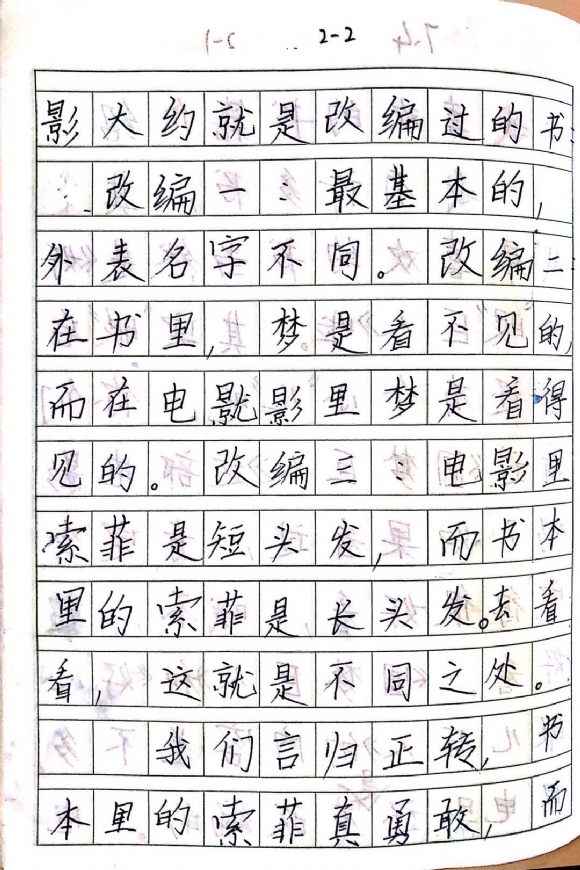 2-2
影大约就是改编过的书
：改编一：最基本的，
外表名字不同。改编二：
在书里，梦是看不见的，
而在电影里梦是看得
见的。改编三：电影里
索菲是短头发，而书本
里的索菲是长头发。去看
看，这就是不同之处。
我们言归正转，书
本里的索菲真勇敢，而